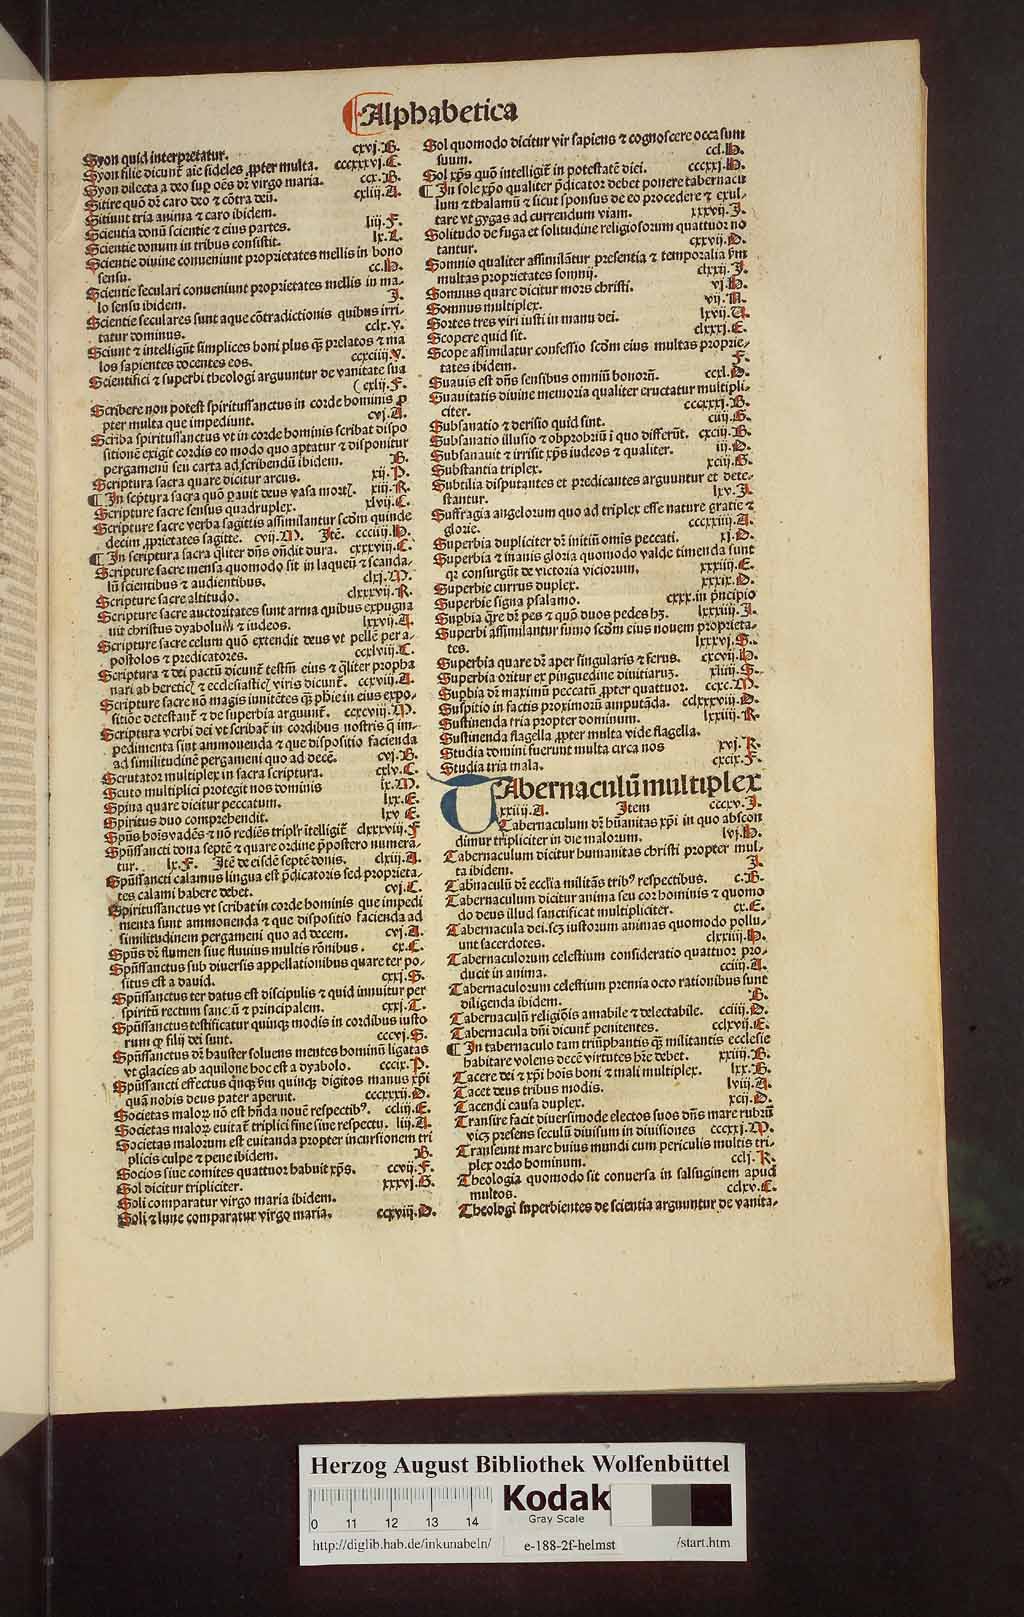 Alphabetica
Syon quid interpretatur. cxvj.B.
Syon filie dicunt̃ aīe fideles ꝓpter multa. cccxxxvj.C.
Syon dilecta a deo sup̱ oēs dr̃ virgo maria. ccx.B.
Sitire quō dr̃ caro deo ⁊ cōtra deū. cxliij.A.
Sitiunt tria anima ⁊ caro ibidem.
Scientia donū scientie ⁊ eius partes. liij.F.
Scientie donum in tribus consistit. lx.L.
Scientie diuine conueniunt proprietates mellis in bono
sensu. cc.H.
Scientie seculari conueniunt proprietates mellis in ma-
lo sensu ibidem. J.
Scientie seculares sunt aque cōtradictionis quibus irri-
tatur dominus. cclx.V.
Sciunt ⁊ intelligūt simplices boni plus q̄ prelatos ⁊ ma
los sapientes docentes eos. ccxciiij.V.
Scientifici ⁊ superbi theologi arguuntur de vanitate sua
(cxlij.F.
Scribere non potest spiritussanctus in corde hominis ꝓ
pter multa que impediunt. cvj.A.
Scriba spiritussanctus vt in corde hominis scribat dispo
sitionē exigit cordis eo modo quo aptatur ⁊ disponitur
pergamenū seu carta ad scribendū ibidem. B.
Scriptura sacra quare dicitur arcus. xij.P.
¶ In scp̄tura sacra quō parauit deus vasa mortꝭ. xiij.R.
Scripture sacre sensus quadruplex. xlvij.C.
Scripture sacre verba sagittis assimilantur scḋm quinde
decim ꝓprietates sagitte. cvij.M. Jtē. cccciiij.H.
¶ In scriptura sacra q̄liter dn̄s on̄dit dura. cxxxviij.C.
Scripture sacre mensa quomodo sit in laqueū ⁊ scanda-
lū scientibus ⁊ audientibus. clxj.M.
Scripture sacre altitudo. clxxxvij.R.
Scripture sacre auctoritates sunt arma quibus expugna
uit christus dyabolum ⁊ iudeos. lxxvij.A.
Scripture sacre celum quō extendit deus vt pellē per a-
postolos ⁊ predicatores. ccxlviij.C.
Scriptura ⁊ dei pactū dicunt̃ testm̄ eius ⁊ q̄liter propha
nari ab hereticꝭ ⁊ ecclesiasticꝭ viris dicunt̃. ccxviij.A.
Scripture sacre nō magis innitētes q̄ pħie in eius expo-
sitiōe detestant̃ ⁊ de superbia arguunt̃. ccxcviij.M.
Scriptura verbi dei vt scribat̃ in cordibus nostris q̄ im-
pedimenta sint ammouenda ⁊ que dispositio facienda
ad similitudinē pergameni quo ad decē. cvj.B.
Scrutator multiplex in sacra scriptura. cxlv.C.
Scuto multiplici protegit nos dominis ix.M.
Spina quare dicitur peccatum. lxx.E.
Spiritus duo comprehendit. lxv E.
Spūs hois vadēs ⁊ nō rediēs triplr̃ ītelligit̃ clxxxviij.F
Spūssancti dona septē ⁊ quare ordine p̄postero numera-
tur. lx.F. Jtē de eisdē septē donis. clxiij.A.
Spūssancti calamus lingua est p̄dicatoris sed proprieta-
tes calami habere debet. cvj.C.
Spiritussanctus vt scribat in corde hominis que impedi
menta sunt ammouenda ⁊ que dispositio facienda ad
similitudinem pergameni quo ad decem. cvj.A.
Spūs dr̃ flumen siue fluuius multis rōnibus. cx.C.
Spūssanctus sub diuersis appellationibus quare ter po-
situs est a dauid. cxxj.S.
Spūssanctus ter datus est discipulis ⁊ quid innuitur per
spiritū rectum sanctū ⁊ principalem. cxxj.T.
Spūssanctus testificatur quinqꝫ modis in cordibus iusto
rum ꝙ filij dei sunt. cccvj.S.
Spūssanctus dr̃ hauster soluens mentes hominū ligatas
vt glacies ab aquilone hoc est a dyabolo. cccix.P.
Spūssancti effectus q̄nqꝫ ẜm quinqꝫ digitos manus xp̄i
quā nobis deus pater aperuit. ccccxxij.D.
Societas maloꝝ nō est hn̄da nouē respectibꝰ. ccliij.E.
Societas maloꝝ euitat̃ triplici fine siue respectu. liij.A.
Societas malorum est euitanda propter incursionem tri
plicis culpe ⁊ pene ibidem. B.
Socios siue comites quattuor habuit xp̄s. ccvij.F.
Sol dicitur tripliciter. xxxvj.G.
Soli comparatur virgo maria ibidem.
Soli ⁊ lune comparatur virgo maria. ccxviij.D.
Sol quomodo dicitur vir sapiens ⁊ cognoscere occasum
suum. ccl.H.
Sol xp̄s quō intelligit̃ in potestatē diei. ccccxj.H.
¶ In sole xp̄o qualiter p̄dicator debet ponere tabernacu
lum ⁊ thalamū ⁊ sicut sponsus de eo procedere ⁊ exul-
tare vt gygas ad currendum viam. xxxvij.J.
Solitudo de fuga et solitudine religiosorum quattuor no
tantur. cxxvij.D.
Somnio qualiter assimilātur presentia ⁊ temporalia ẜm
multas proprietates somnij. clxxij.J.
Somnus quare dicitur mors christi. vj.H.
Somnus multiplex. vij.A.
Sortes tres viri iusti in manu dei. lxvij.A.
Scopere quid sit. clxxxj.E.
Scope assimilatur confessio scḋm eius multas proprie-
tates ibidem. F.
Suauis est dn̄s sensibus omniū bonorū. ccxl.D.
Suauitatis diuine memoria qualiter eructatur multipli-
citer. ccccxxj.B.
Subsanatio ⁊ derisio quid sint. ciiij.G.
Subsanatio illusio ⁊ obprobriū ī quo differūt. cxciij.B.
Subsanauit ⁊ irrisit xp̄s iudeos ⁊ qualiter. iij.D.
Substantia triplex. xciij.G.
Subtilia disputantes et predicantes arguuntur et dete-
stantur. lxv.J.
Suffragia angelorum quo ad triplex esse nature gratie ⁊
glorie. cccxxiiij.A.
Superbia dupliciter dr̃ initiū omis peccati. xj.D.
Superbia ⁊ inanis gloria quomodo valde timenda sunt
qꝛ consurgūt de victoria viciorum. xxxiiij.E.
Superbie currus duplex. xxxix.D.
Superbie signa psalamo. cxxx.in p̄ncipio
Supbia q̄re dr̃ pes ⁊ quō duos pedes hꝫ. lxxxiiij.J.
Superbi assimilantur fumo scḋm eius nouem proprieta-
tes. lxxxvj.S.
Superbia quare dr̃ aper singularis ⁊ ferus. cxcvij.H.
Superbia oritur ex pinguedine diuitiarꝫ. xliiij.S.
Supbia dr̃ maximū peccatū ꝓpter quattuor. ccxc.M.
Suspitio in factis proximorū amputāda. cclxxxviij.D.
Sustinenda tria propter dominum. lxxiiij.R.
Sustinenda flagella ꝓpter multa vide flagella.
Studia domini fuerunt multa circa nos xvj.R.
Studia tria mala. cxcix.F.
TAbernaculū multiplex
xxiiij.A. Jtem ccccxv.J.
Tabernaculum dr̃ hūanitas xp̄i in quo abscon
dimur tripliciter in die malorum. lvj.H.
Tabernaculum dicitur humanitas christi propter mul-
ta ibidem. J.
Tab̄naculū dr̃ ecclīa militās tribꝰ respectibus. c.B.
Tabernaculum dicitur anima seu cor hominis ⁊ quomo
do deus illud sanctificat multipliciter. cx.E.
Tabernacula dei.scꝫ iustorum animas quomodo pollu-
unt sacerdotes. clxxiiij.H.
Tabernaculorum celestium consideratio quattuor pro-
ducit in anima. cciiij.A.
Tabernaculorum celestium premia octo rationibus sunt
diligenda ibidem. B.
Tabernaculū religiōis amabile ⁊ delectabile. cciiij.D.
Tabernacula dn̄i dicunt̃ penitentes. cclxvij.E.
¶ In tabernaculo tam triūphantis q̄ militantis ecclesie
habitare volens decē virtutes hr̄e debet. xxiiij.B.
Tacere dei ⁊ xp̄i hois boni ⁊ mali multiplex. lxx.B.
Tacet deus tribus modis. lviij.A.
Tacendi causa duplex. xcij.D.
Transire facit diuersimode electos suos dn̄s mare rubrū
vicꝫ presens seculū diuisum in diuisiones ccccxxj.M.
Transeunt mare huius mundi cum periculis multis tri-
plex ordo hominum. cclj.K.
Theologia quomodo sit conuersa in salsuginem apud
multos. cclxv.C.
Theologi superbientes de scientia arguuntur de vanita-
Herzog August Bibliothek Wolfenbüttel
0 11 12 13 14
Kodak
Gray Scale
http://diglib.hab.de/inkunabeln/ e-188-2f-helmst /start.htm